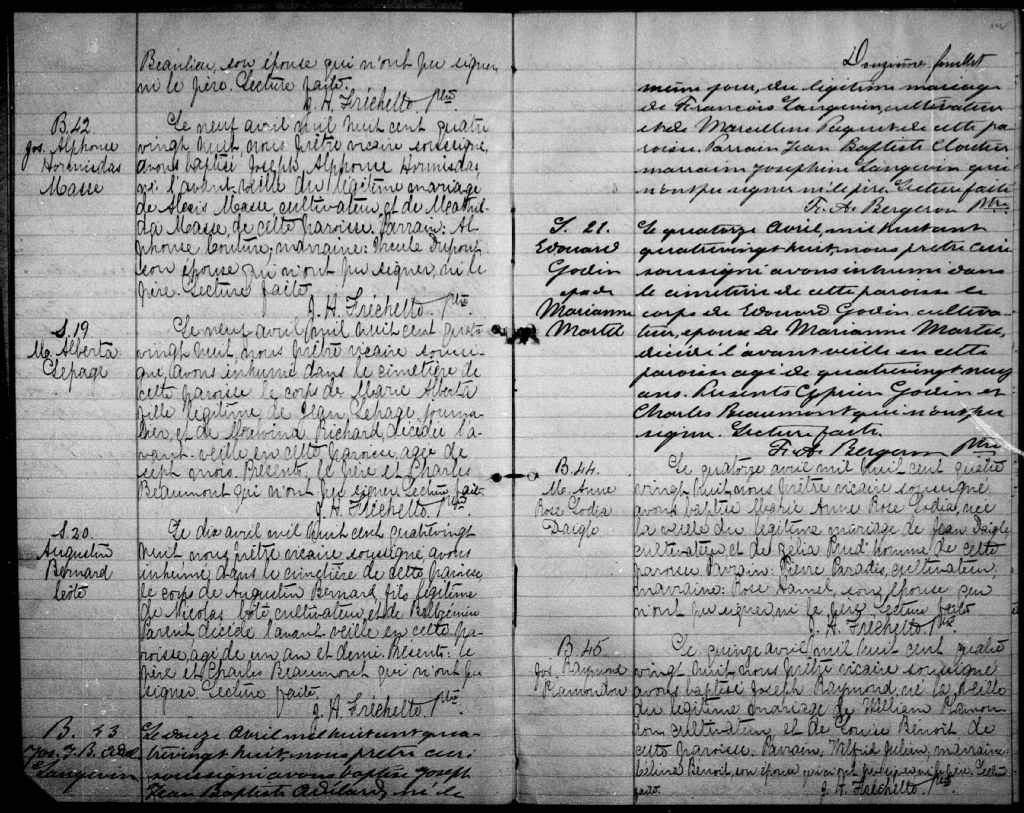 Beaulieu, son épouse qui n'ont pu signer,
ni le père. Lecture faite.
J. H. Fréchette Ptre
B. 42
Jos. Alphonse
Hormisdas
Masse
Le neuf avril mil huit cent quatre
vingt huit nous prêtre vicaire soussigné,
avons baptisé Joseph Alphonse Hormisdas,
né l'avant veille du légitime mariage
de Alexis Masse cultivateur et de Mathil-
da Masse, de cette paroisse. Parrain: Al-
phonse Couture, marraine: Dupont
son épouse qui n'ont pu signer, ni le
père. Lecture faite.
J. H. Fréchette. Ptre
S. 19
M. Alberta
Lepage
Le neuf avril mil huit cent quatre
vingt huit, nous prêtre vicaire soussi-
gné, avons inhumé dans le cimetière de
cette paroisse le corps de Marie Alberta
fille légitime de Jean Lepage, journa-
lier, et de Malvina Richard, décédée l'a-
vant-veille en cette paroisse, agée de
sept mois. Présents, le père et Charles
Beaumont qui n'ont pu signer. Lecture faite.
J. H. Fréchette. Ptre
S. 20
Augustin
Bernard
Côté
Le dix avril mil huit cent quatrevingt
huit nous prêtre vicaire soussigné avons
inhumé dans le cimetière de cette paroisse,
le corps de Augustin Bernard, fils légitime
de Nicolas Côté cultivateur, et de
Parent décédé l'avant veille en cette pa-
roisse, agé de un an et demi. Présents: le
père et Charles Beaumont qui n'ont pu
signer. Lecture faite.
J. H. Fréchette Ptre
B. 43
Jos. J. B. Adél.
Langevin
Le douze Avril mil huit cent qua-
trevingt huit, nous prêtre curé
soussigné avons baptisé Joseph
Jean Baptiste Adélard, né le
Douzième feuillet
même jour, du légitime mariage
de François Langevin, cultivateur
et de Marcelline Paquet de cette pa-
roisse. Parrain Jean Baptiste Cloutier
marraine Josephine Langevin qui
n'ont pu signer ni le père. Lecture faite
F. A. Bergeron Ptre
S. 21.
Edouard
Godin
epx de
Marianne
Martel
Le quatorze Avril, mil huit cent
quatrevingt huit, nous prêtre curé
soussigné avons inhumé dans
le cimetière de cette paroisse le
corps de Edouard Godin, cultiva-
teur, epoux de Marianne Martel,
décédé l'avant veille en cette
paroisse agé de quatrevingt neuf
ans. Présents Cyprien Godin et
Charles Beaumont qui n'ont pu
signer. Lecture faite.
F. A. Bergeron Ptre
B. 44.
M. Anne
Rose Lodia
Daigle
Le quatorze avril mil huit cent quatre
vingt huit nous prêtre vicaire soussigné
avons baptisé Marie Anne Rose Lodia, née
la veille du légitime mariage de Jean Daigle
cultivateur et de Zelia Prud'homme de cette
paroisse. Parrain: Pierre Paradis, cultivateur,
marraine: Rose Hamel, son épouse qui
n'ont pu signer, ni le père. Lecture faite.
J. H. Fréchette. Ptre.
B. 45.
Jos. Raymond
Plamondon
Le quinze avril mil huit cent quatre
vingt huit nous prêtre vicaire soussigné
avons baptisé Joseph Raymond, né la veille
du légitime mariage de William Plamon-
don cultivateur et de Louise Benoit de
cette paroisse. Parrain, Wilfrid Julien, marraine
Célina Benoit, son épouse qui n'ont pu signer, ni le père. Lecture
faite.
J. H. Fréchette. Ptre.